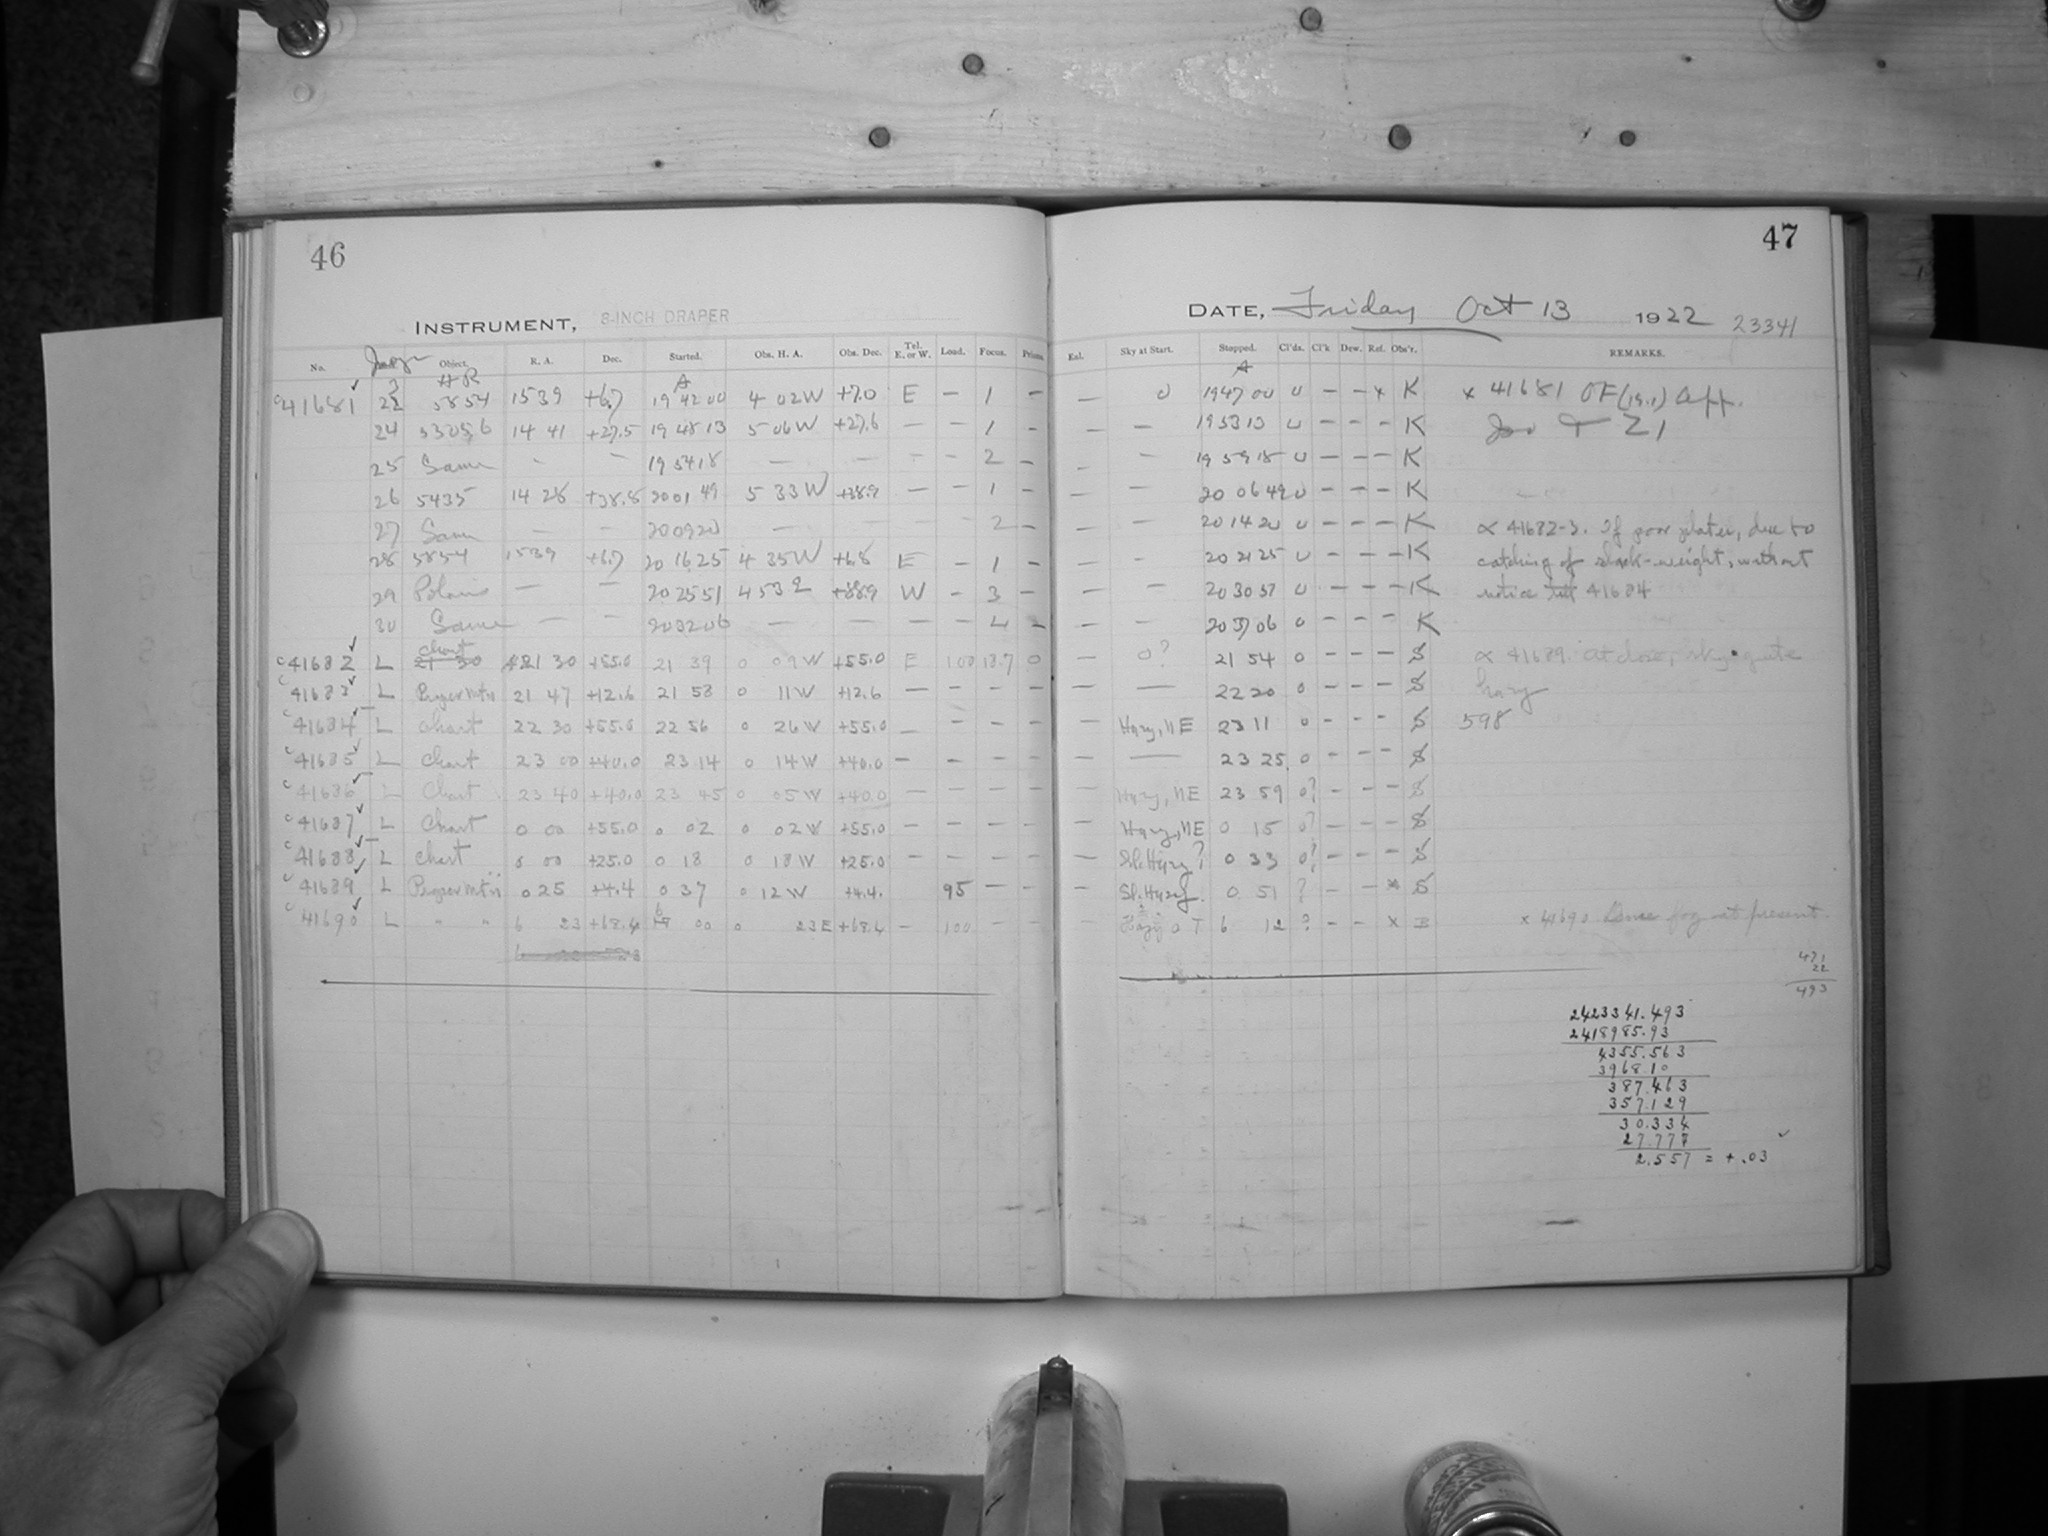 46
INSTRUMENT, 8-INCH DRAPER
No. Object. R. A. Dec. Started. Obs. H. A. Obs. Dec. Tel. E. or W. Load. Focus. Prisms.
HR A
c41681 5854 1539 +6.7 19 42 00 4 02W +7.0 E — 1 —
24 14 41 +27.5 19 48 13 5 06W +27.6 — — 1 —
25 Same - — 19 54 18 — — - — 2 —
26 5435 14 28 +38.8 20 01 49 5 33W +38.9 — — 1 —
27 Same — — 20 09 20 — — 2 —
28 5854 1539 +6.7 20 16 25 4 35W +6.8 E — 1 —
29 Polaris — — 20 25 51 +88.9 W — 3 —
30 Same — — 20 32 06 — — — — 4 —
c41682 L chart 21 30 +55.0 21 39 0 09W +55.0 E 100 18.7 0
c41683 L 21 47 +12.6 21 58 0 11W +12.6 — — — —
c41684 L Chart 22 30 +55.0 22 56 0 26W +55.0 — — — —
c41685 L Chart 23 00 +40.0 23 14 0 14W +40.0 — — — —
c41686 L Chart 23 40 +40.0 23 45 0 05W +40.0 — — — —
c41687 L Chart 0 00 +55.0 0 02 0 02W +55.0 — — — —
c41688 L Chart 0 00 +25.0 0 18 0 18W +25.0 — — — —
c41689 L 0 25 +4.4 0 37 0 12W +4.4. 95 — —
c41690 L " " 6 23 +68.4 6 00 0 23E +68.4 — 100 — —
47
DATE, Friday Oct 13 1922 23341
Ext. Sky at Start. Stopped. Cl'ds. Cl'k Dew. Ref. Obs'r. REMARKS.
A
— 0 19 47 00 0 — — x K x 41681 OF(19.1) App.
— — 19 53 13 0 — — — K
— — 19 59 18 0 — — — K
— — 20 06 49 0 — — — K
— — 20 14 20 0 — — — K ∝ 41682-3. If poor plates, due to
— — 20 21 25 0 — — — K catching of weight, without
— — 0 — — — K notice till 41684
20 37 06 0 — — — K
— 0? 21 54 0 — — — S ∝ 41689. At close, sky quite
— — 22 20 0 — — — S hazy
— Hazy, NE 23 11 0 — — — S 598
— — 23 25 0 — — — S
— Hazy, NE 23 59 0? — — — S
— Hazy, NE 0 15 0? — — — S
— Sl. Hazy? 0 33 0? — — — S
— Sl. Hazy. 0 51 ? — — x S
— 6 12 ? — — x B x 41690 Dense fog at present.
471
22
493
2423341.493
2418985.93
4355.563
3968.10
387.463
357.129
30.334
27.777
2.557 = +.03